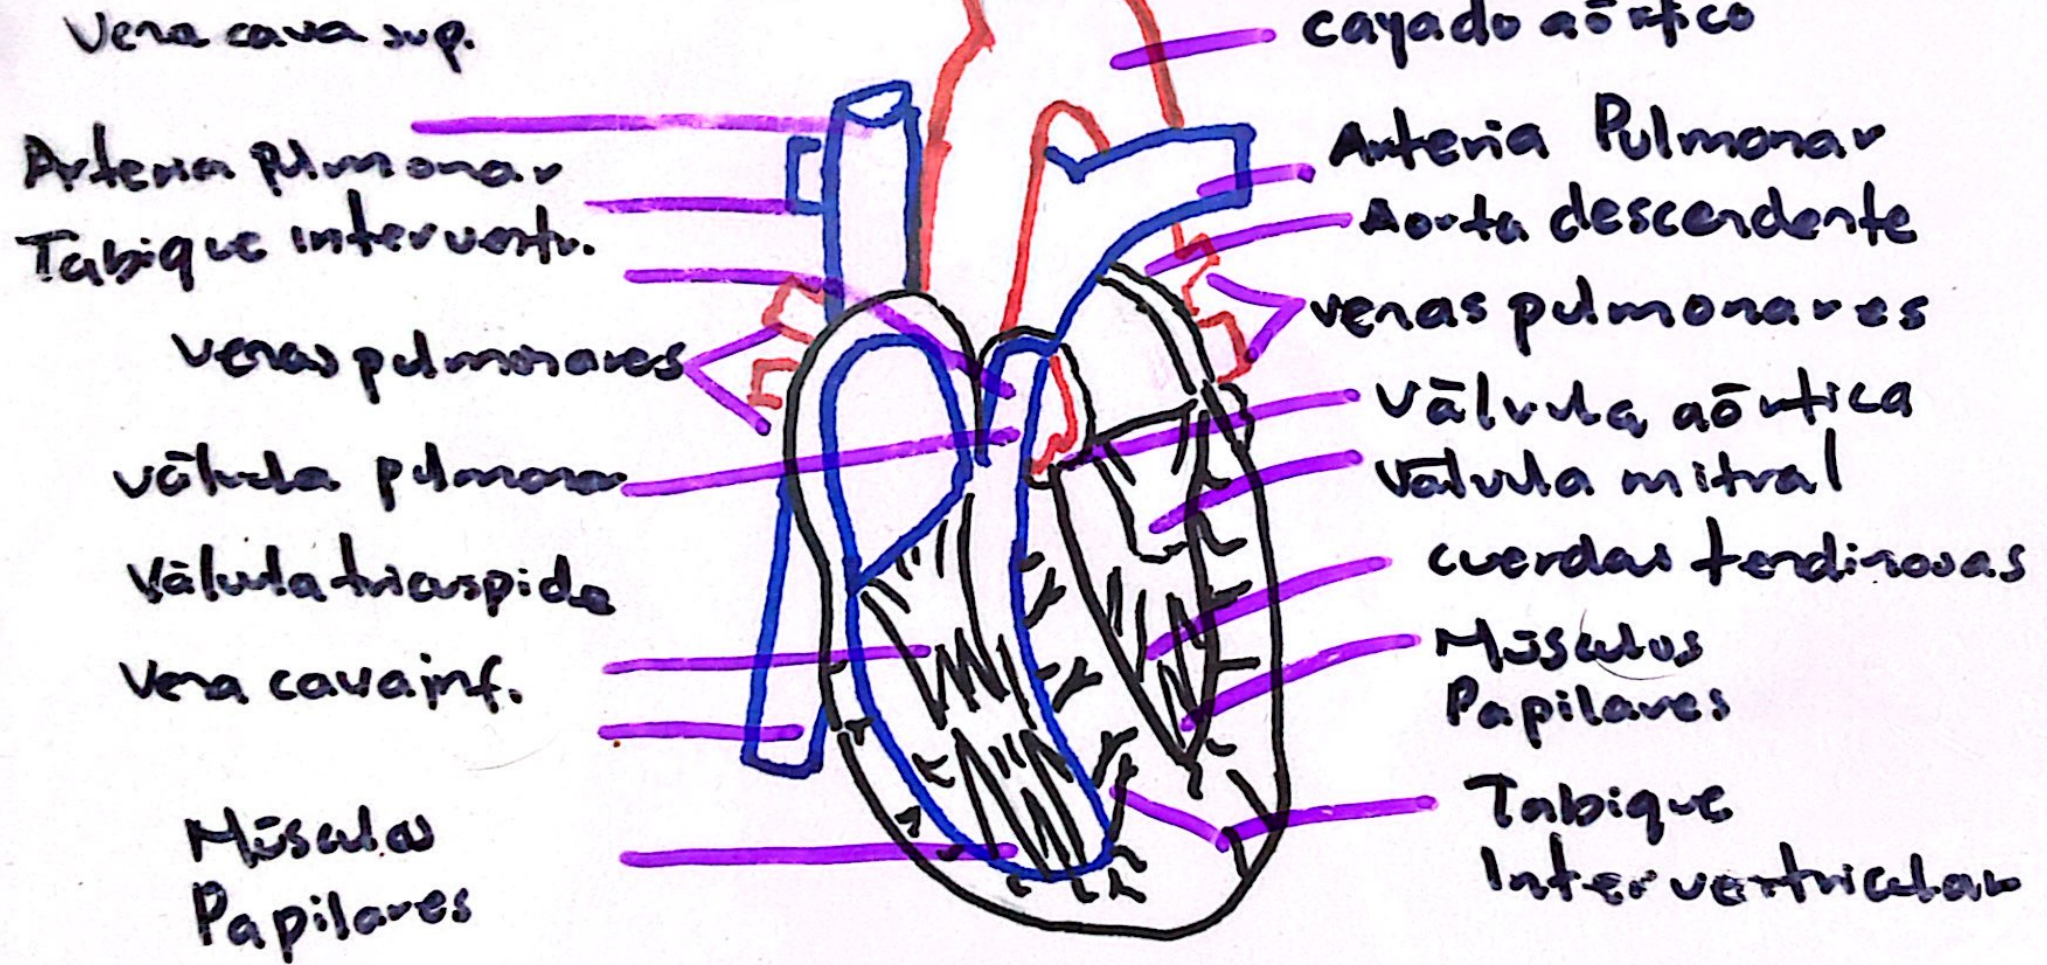 Vena cava sup.
Arteria pulmonar
Tabique interventr.
Venas pulmonares
Válvula pulmonar
Válvula tricuspide
Vena cava inf.
Músculos
Papilares
cayado aórtico
Arteria Pulmonar
Aorta descendente
venas pulmonares
Válvula aórtica
Válvula mitral
cuerdas tendinosas
Músculos
Papilares
Tabique
Interventricular